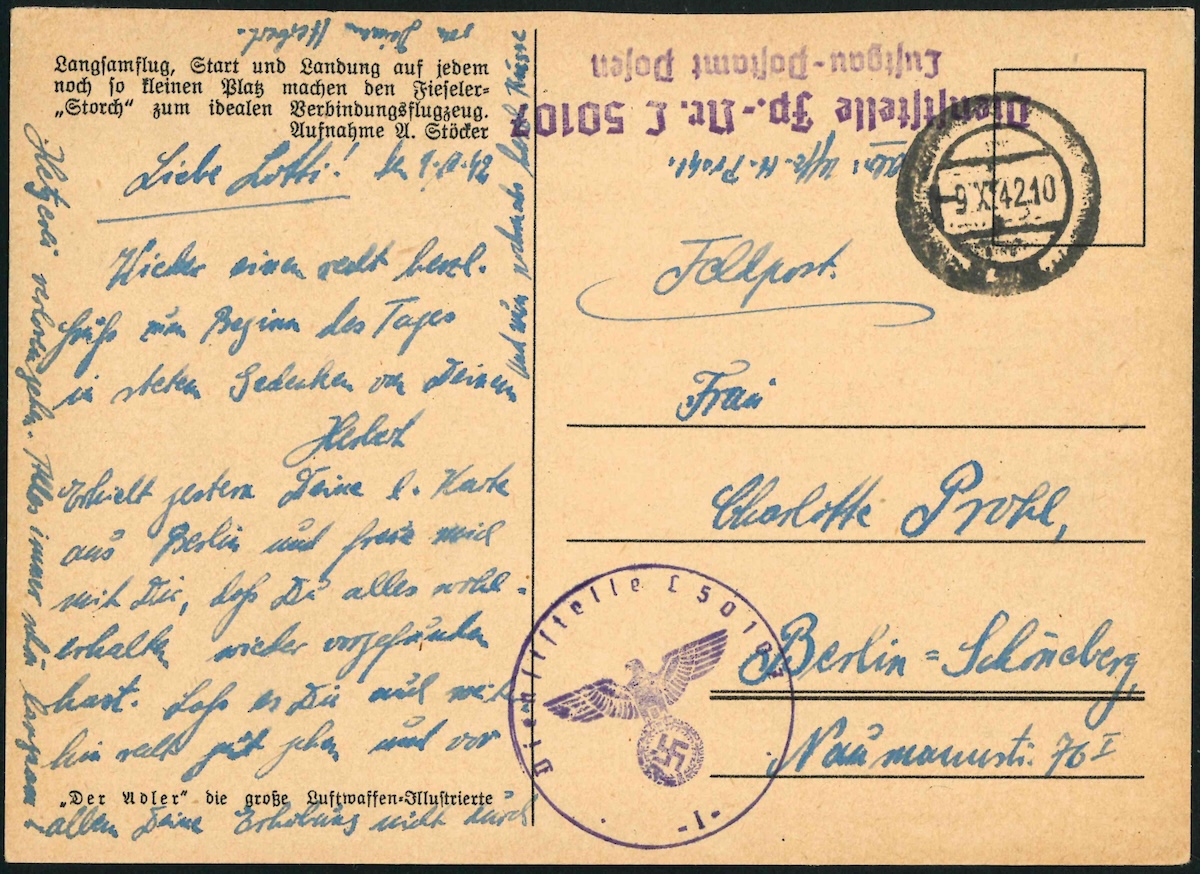 Langsamflug, Start und Landung auf jedem
noch so kleinen Platz machen den Fieseler-
„Storch“ zum idealen Verbindungsflugzeug.
Aufnahme A. Stöcker
Liebe Lotti!
Wieder einen recht herzl.
Gruß zum Beginn des Tages
in stetem Gedenken von Deinem
Herbert
Erhielt gestern Deine l. Karte
aus Berlin und freue mich
mit Dir, daß Du alles wohl-
erhalten wieder vorgefunden
hast. Daß es Dir auch weiter-
hin recht gut gehen und vor
„Der Adler“ die große Luftwaffen-Illustrierte
allem Deine Erholung nicht durch
verlorengehn. Alles immer schön langsam!
und nun nochmals herzl. Küsse
von Deinem Herbert.
Dienststelle Fp.-Nr. L 50107
Luftgau-Postamt Posen
Prohl.
-9.XI.42.10
Feldpost.
Frau
Charlotte Prohl,
Berlin=Schöneberg,
Naumannstr. 76 I
Dienststelle L 50107
-1-